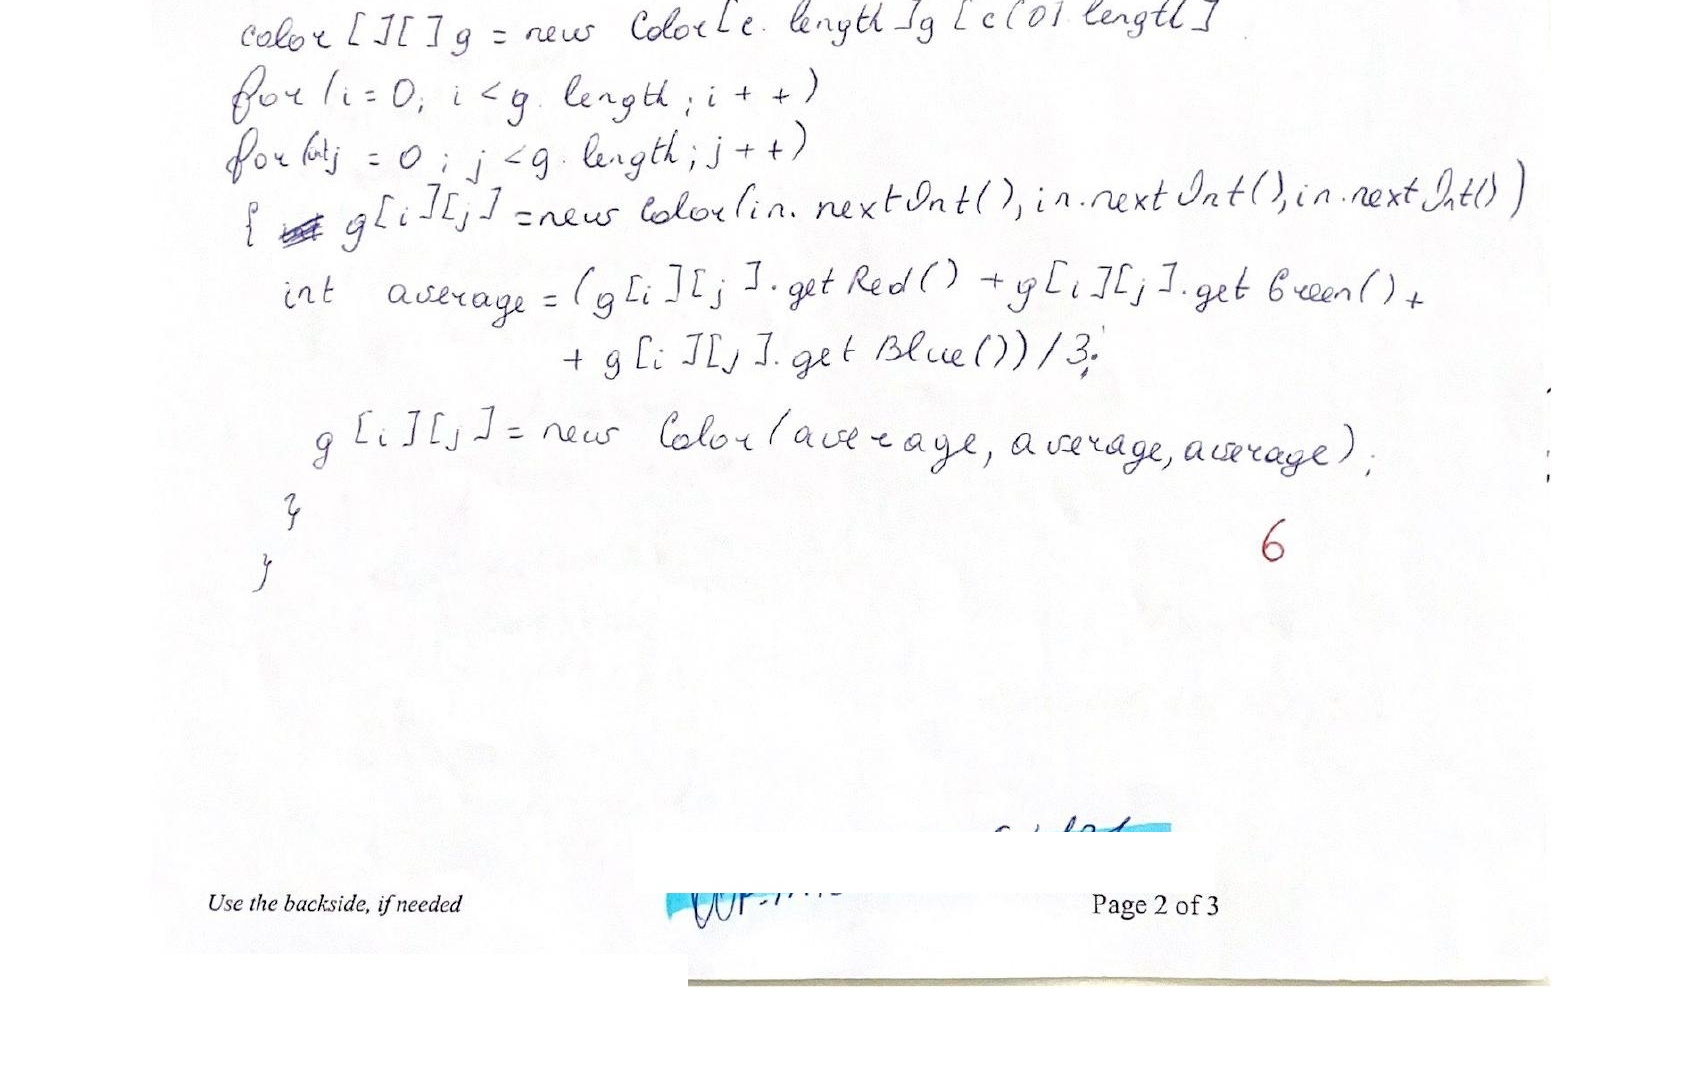 color [][] g = new Color[c. length]g [c[0] length]
for (i = 0; i < g. length; i + +)
for (int j = 0; j < g. length; j + +)
{ g[i][j] = new Color(in. nextInt(), in.nextInt(), in.nextInt())
int average = (g[i][j]. getRed() + g[i][j]. getGreen() +
+ g[i][j]. getBlue())/3;
g[i][j] = new Color(average, average, average);
}
6
}
Use the backside, if needed
Page 2 of 3